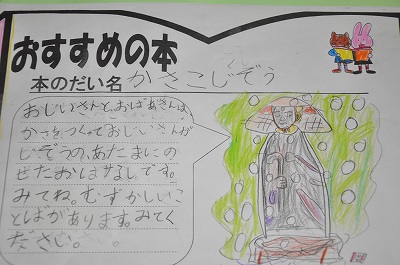 おすすめの本
本のだい名 かさこじぞう
おじいさんとおばあさんは、
かさをつくっておじいさんが
じぞうの、あたまにの
せたおはなしです。
みてね。むずかしいこ
とばがあります。みてく
ださい。